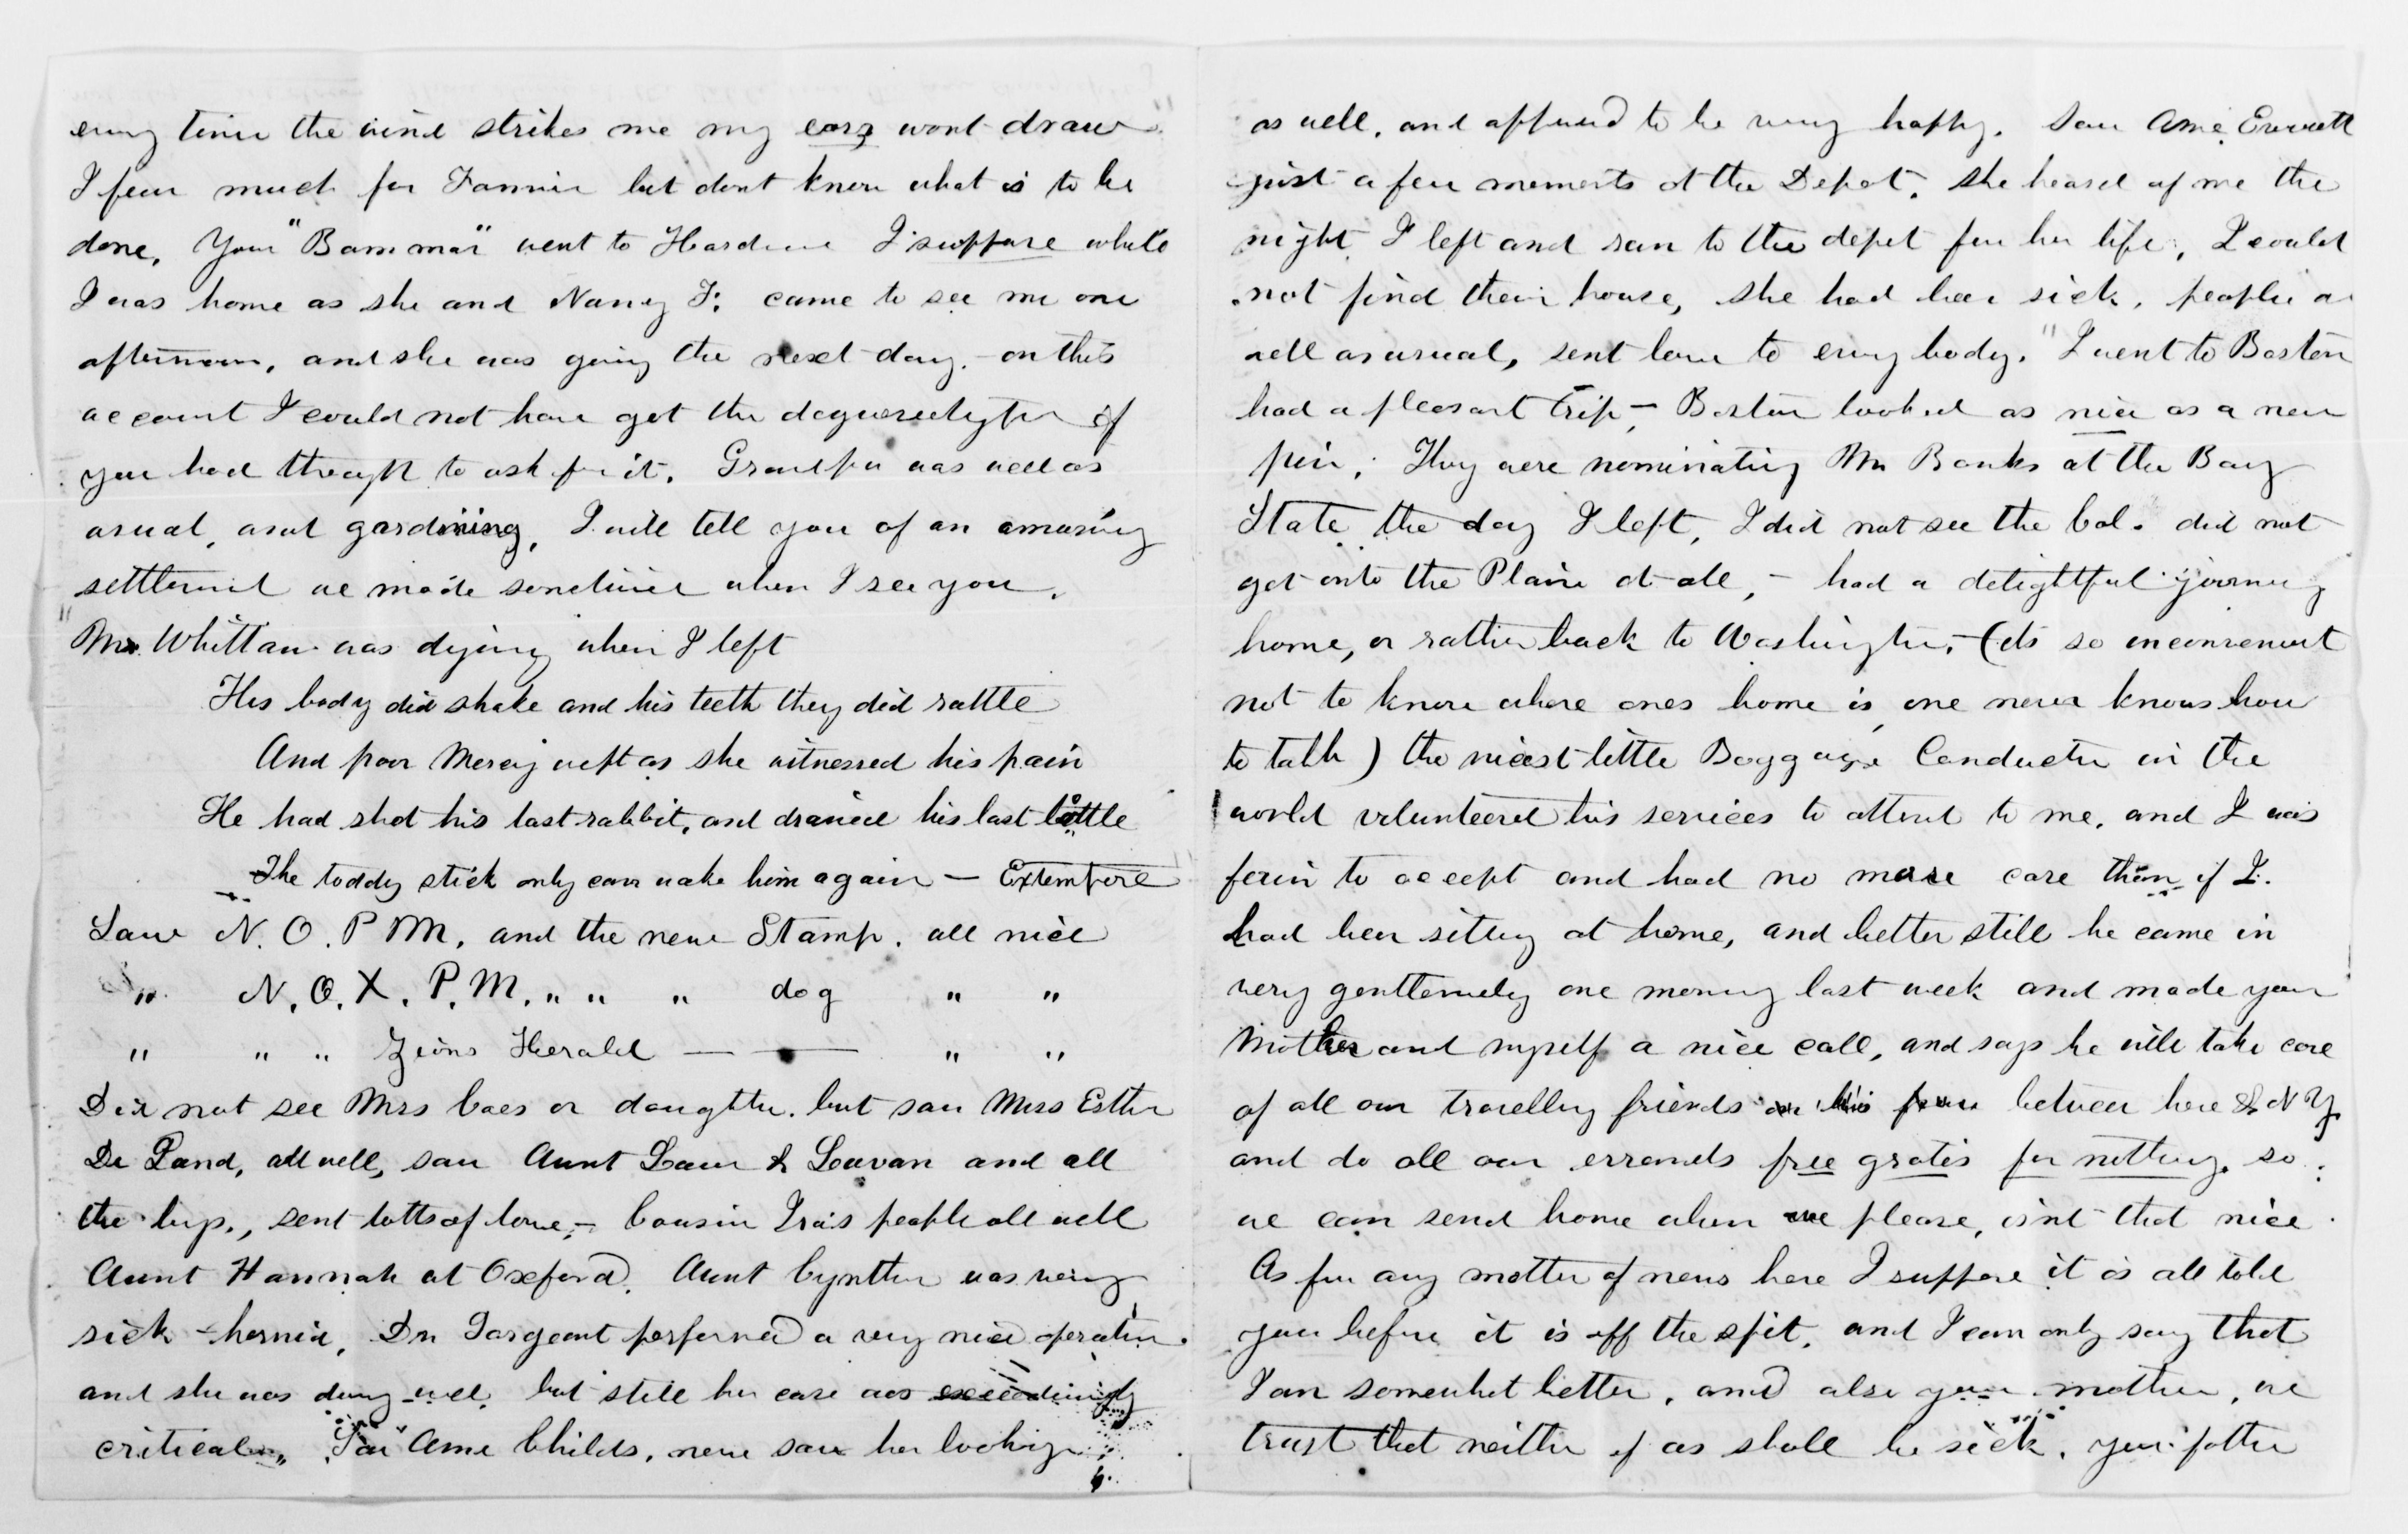 every time the wind strikes me my ears wont draw
I fear much for Fannie but dont know what is to be
done, Your "Bamma" went to I suppose while
I was home as she and Nancy F. came to see me one
afternoon, and she was going the next day. - on this
account I could not have got the daguerreotype if
you had thought to ask for it. Grandpa was well as
usual, and gardning, I will tell you of an amusing
settlement we made sometime when I see you.
Mr. was dying when I left
His body did shake and his teeth they did rattle
And poor Mercy wept as she witnessed his pain
He had shot his last rabbit, and drained his last bottle
The toddy stick only can wake him again — Extempore
Saw N. O. P M, and the new Stamp. all nice
" N. O. X. P. M. " " " dog " "
" " " Zions Herald — — " "
Did not see Mrs or daughter. but saw Miss Esther
De Land, all well, saw Aunt & and all
the , sent lotts of love, - Cousin Ira's people all well
Aunt Hannah at Oxford. Aunt Cynthia was very
sick - hernia, Dr Sargeant performed a very nice operation.
and she was doing well, but still her case was exceedingly
critical. Saw Ame Childs, never saw her looking
as well, and appeared to be very happy. Saw Ame Everett
just a few moments at the Depot. She heard of me the
night I left and ran to the depot for her life, I could
not find their house, she had been sick, people as
well as usual, sent love to every body. "I went to Boston
had a pleasant trip, - Boston looked as nice as a new
pin; They were nominating Mr Banks at the Bay
State the day I left, I did not see the Col. did not
get onto the Plain at all, - had a delightful journey
home, or rather back to Washington. - (its so inconvenient
not to know where ones home is, one never knows how
to talk) the nicest little Baggage Conductor in the
world volunteered his services to attend to me. and I was
fain to accept and had no more care than if I.
had been sitting at home, and better still he came in
very gentlemenly one morning last week and made your
Mother and myself a nice call, and says he will take care
of all our travelling friends between here & N Y.
and do all our errands free gratis for nothing. so
we can send home when we please, isnt that nice
As for any matter of news here I suppose it is all told
you before it is off the spit, and I can only say that
I am somewhat better, and also your mother, we
trust that neither of us shall be sick. your father